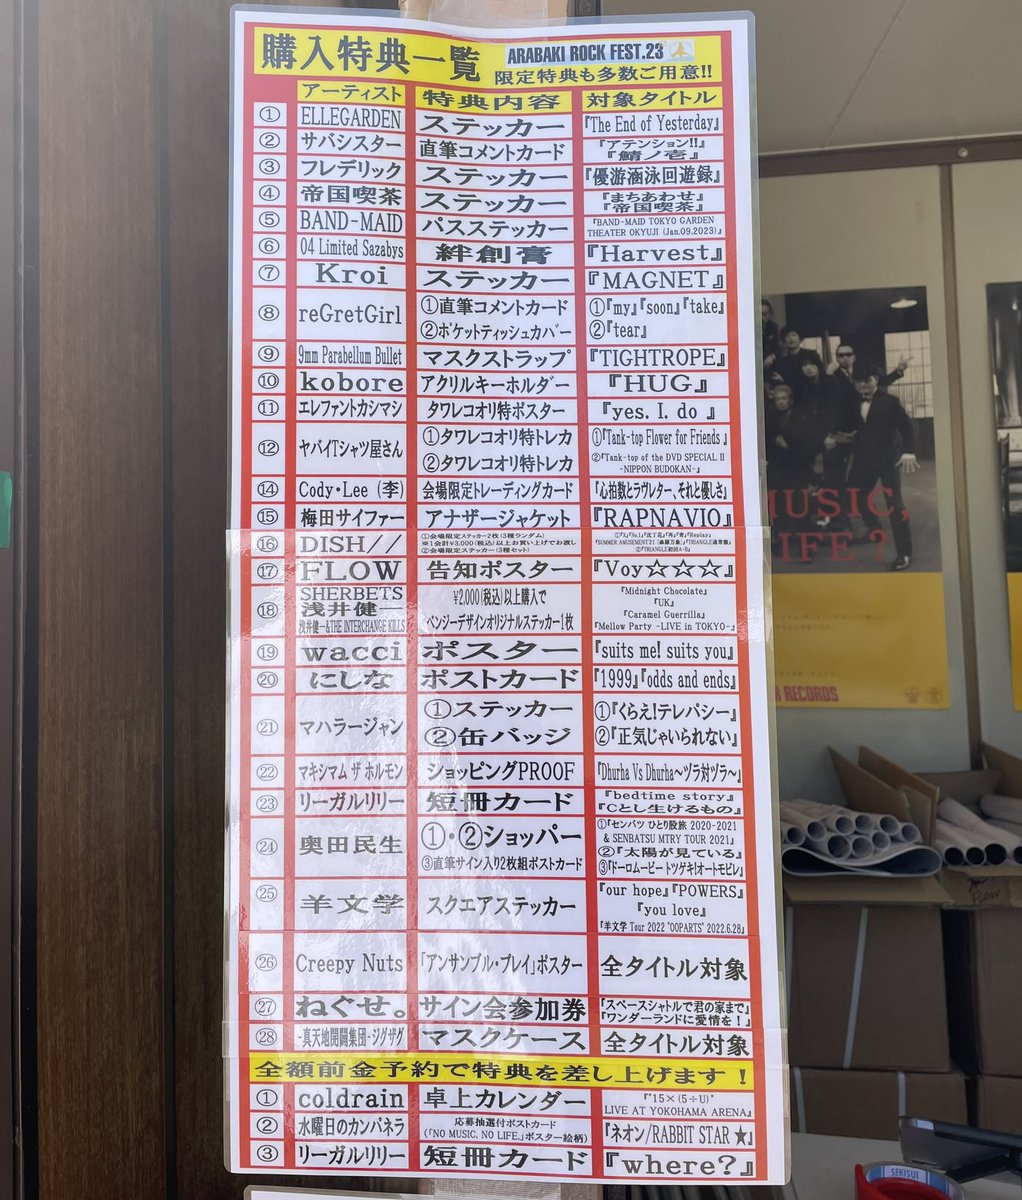 購入特典一覧
ARABAKI ROCK FEST.23
限定特典も多数ご用意!!
アーティスト 特典内容 対象タイトル
① ELLEGARDEN ステッカー 『The End of Yesterday』
② サバシスター 直筆コメントカード 『アテンション!!』
『鯖ノ壱』
③ フレデリック ステッカー 『優游涵泳回遊録』
④ 帝国喫茶 ステッカー 『まちあわせ』
『帝国喫茶』
⑤ BAND-MAID パスステッカー 『BAND-MAID TOKYO GARDEN
THEATER OKYUJI (Jan.09.2023)』
⑥ 04 Limited Sazabys 絆創膏 『Harvest』
⑦ Kroi ステッカー 『MAGNET』
⑧ reGretGirl ①直筆コメントカード ①『my』『soon』『take』
②ポケットティッシュカバー ②『tear』
⑨ 9mm Parabellum Bullet マスクストラップ 『TIGHTROPE』
⑩ kobore アクリルキーホルダー 『HUG』
⑪ エレファントカシマシ タワレコオリ特ポスター 『yes. I. do 』
⑫ ヤバイTシャツ屋さん ①タワレコオリ特トレカ ①『Tank-top Flower for Friends 』
②タワレコオリ特トレカ ②『Tank-top of the DVD SPECIAL II
-NIPPON BUDOKAN-』
⑭ Cody・Lee (李) 会場限定トレーディングカード 『心拍数とラヴレター、それと優しさ』
⑮ 梅田サイファー アナザージャケット 『RAPNAVIO』
⑯ DISH// ①会場限定ステッカー2枚(3種ランダム)
※1会計¥3,000(税込)以上お買い上げでお渡し
②会場限定ステッカー(3種セット)
⑰ FLOW 告知ポスター 『Voy☆☆☆』
⑱ SHERBETS
浅井健一
浅井健一&THE INTERCHANGE KILLS
¥2,000(税込)以上購入で
ベンジーデザインオリジナルステッカー1枚
『Midnight Chocolate』
『UK』
『Caramel Guerrilla』
『Mellow Party -LIVE in TOKYO-』
⑲ wacci ポスター 『suits me! suits you』
⑳ にしな ポストカード 『1999』『odds and ends』
㉑ マハラージャン ①ステッカー ①『くらえ!テレパシー』
②缶バッジ ②『正気じゃいられない』
㉒ マキシマム ザ ホルモン ショッピングPROOF 『Dhurha Vs Dhurha〜ヅラ対ヅラ〜』
㉓ リーガルリリー 短冊カード 『bedtime story』
『Cとし生けるもの』
㉔ 奥田民生 ①・②ショッパー ①『センバツ ひとり股旅 2020-2021
& SENBATSU MTRY TOUR 2021』
②『太陽が見ている』
③直筆サイン入り2枚組ポストカード ③『ドーロムービー トツゲキ!オートモビレ』
㉕ 羊文学 スクエアステッカー 『our hope』『POWERS』
『you love』
『羊文学 Tour 2022 "OOPARTS" 2022.6.28』
㉖ Creepy Nuts 「アンサンブル・プレイ」ポスター 全タイトル対象
㉗ ねぐせ。 サイン会参加券 『スペースシャトルで君の家まで』
『ワンダーランドに愛情を!』
㉘ -真天地開闢集団-ジグザグ マスクケース 全タイトル対象
全額前金予約で特典を差し上げます!
① coldrain 卓上カレンダー 『"15×(5÷U)"
LIVE AT YOKOHAMA ARENA』
② 水曜日のカンパネラ 応募抽選付ポストカード
(「NO MUSIC, NO LIFE.」ポスター絵柄)
『ネオン/RABBIT STAR ★』
③ リーガルリリー 短冊カード 『where?』
MUSIC,
IFE?
RECORDS
FLOW
SEKISUI